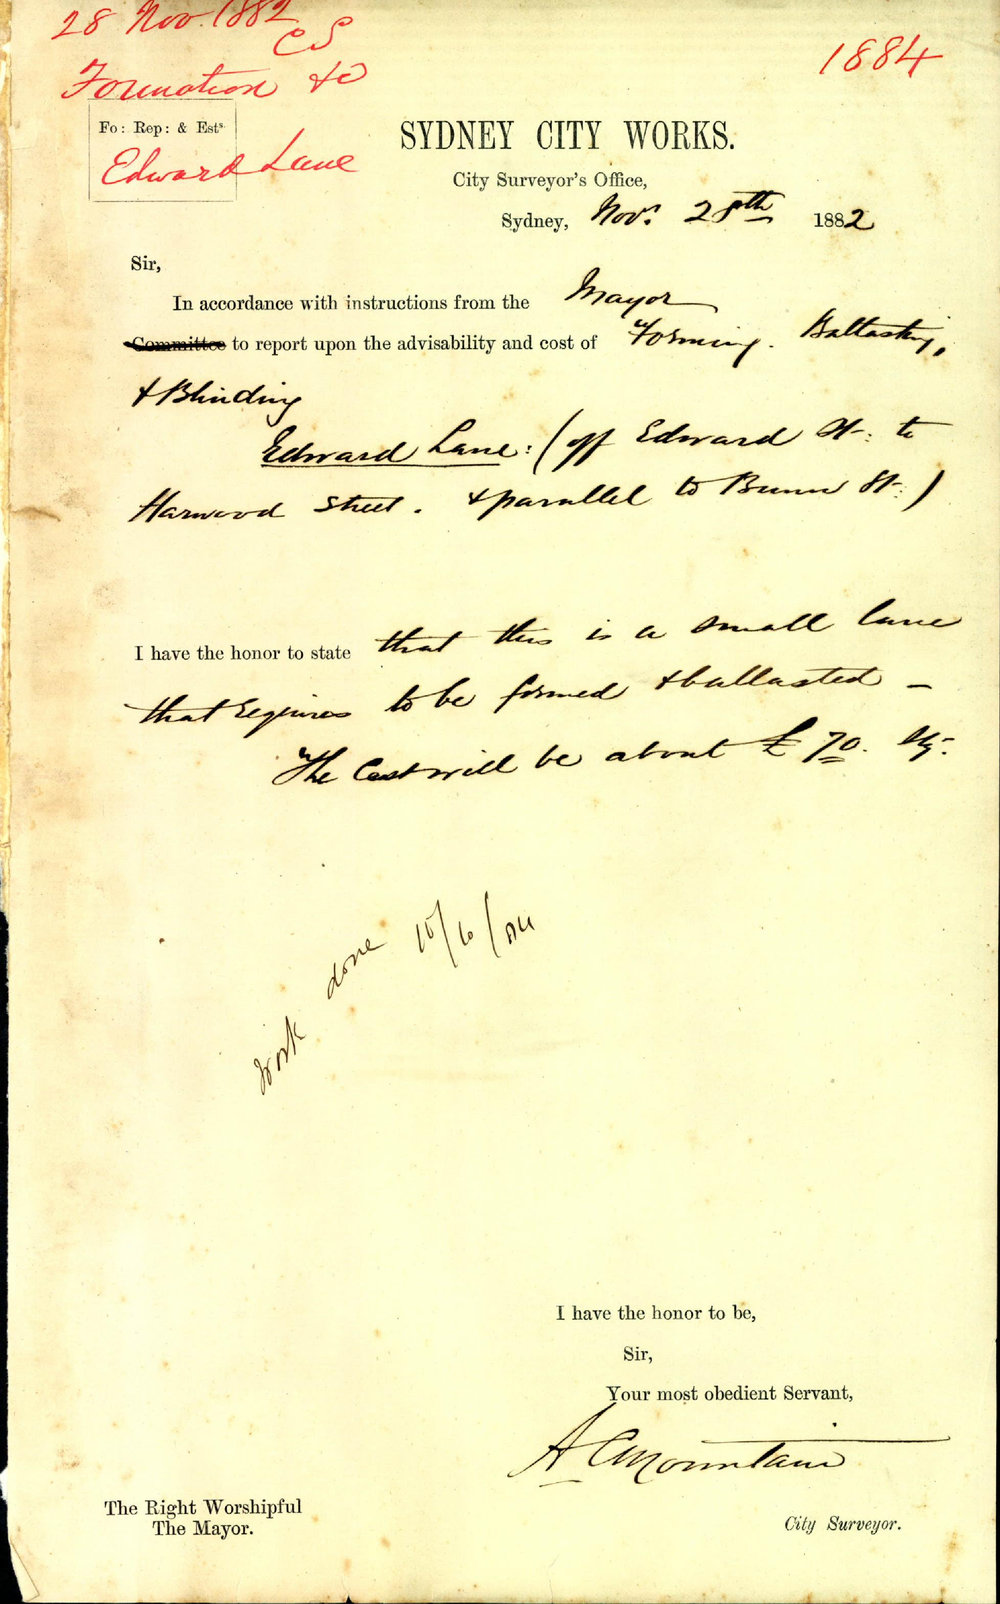 28 Nov. 1882
CS
1884
Formation &c
Fo: Rep: & Ests.
Edward Lane
SYDNEY CITY WORKS.
City Surveyor's Office,
Sydney, Novr. 28th 1882
Sir,
In accordance with instructions from the Mayor
Committee to report upon the advisability and cost of Forming. Ballasting,
& Blinding
Edward Lane: (off Edward St: to
Harwood Street. & parallel to Bunn St:)
I have the honor to state that this is a small lane
that requires to be formed & ballasted –
The Cost will be about £70.
Work done 10/6/84
I have the honor to be,
Sir,
Your most obedient Servant,
A C Mountain
The Right Worshipful
The Mayor.
City Surveyor.